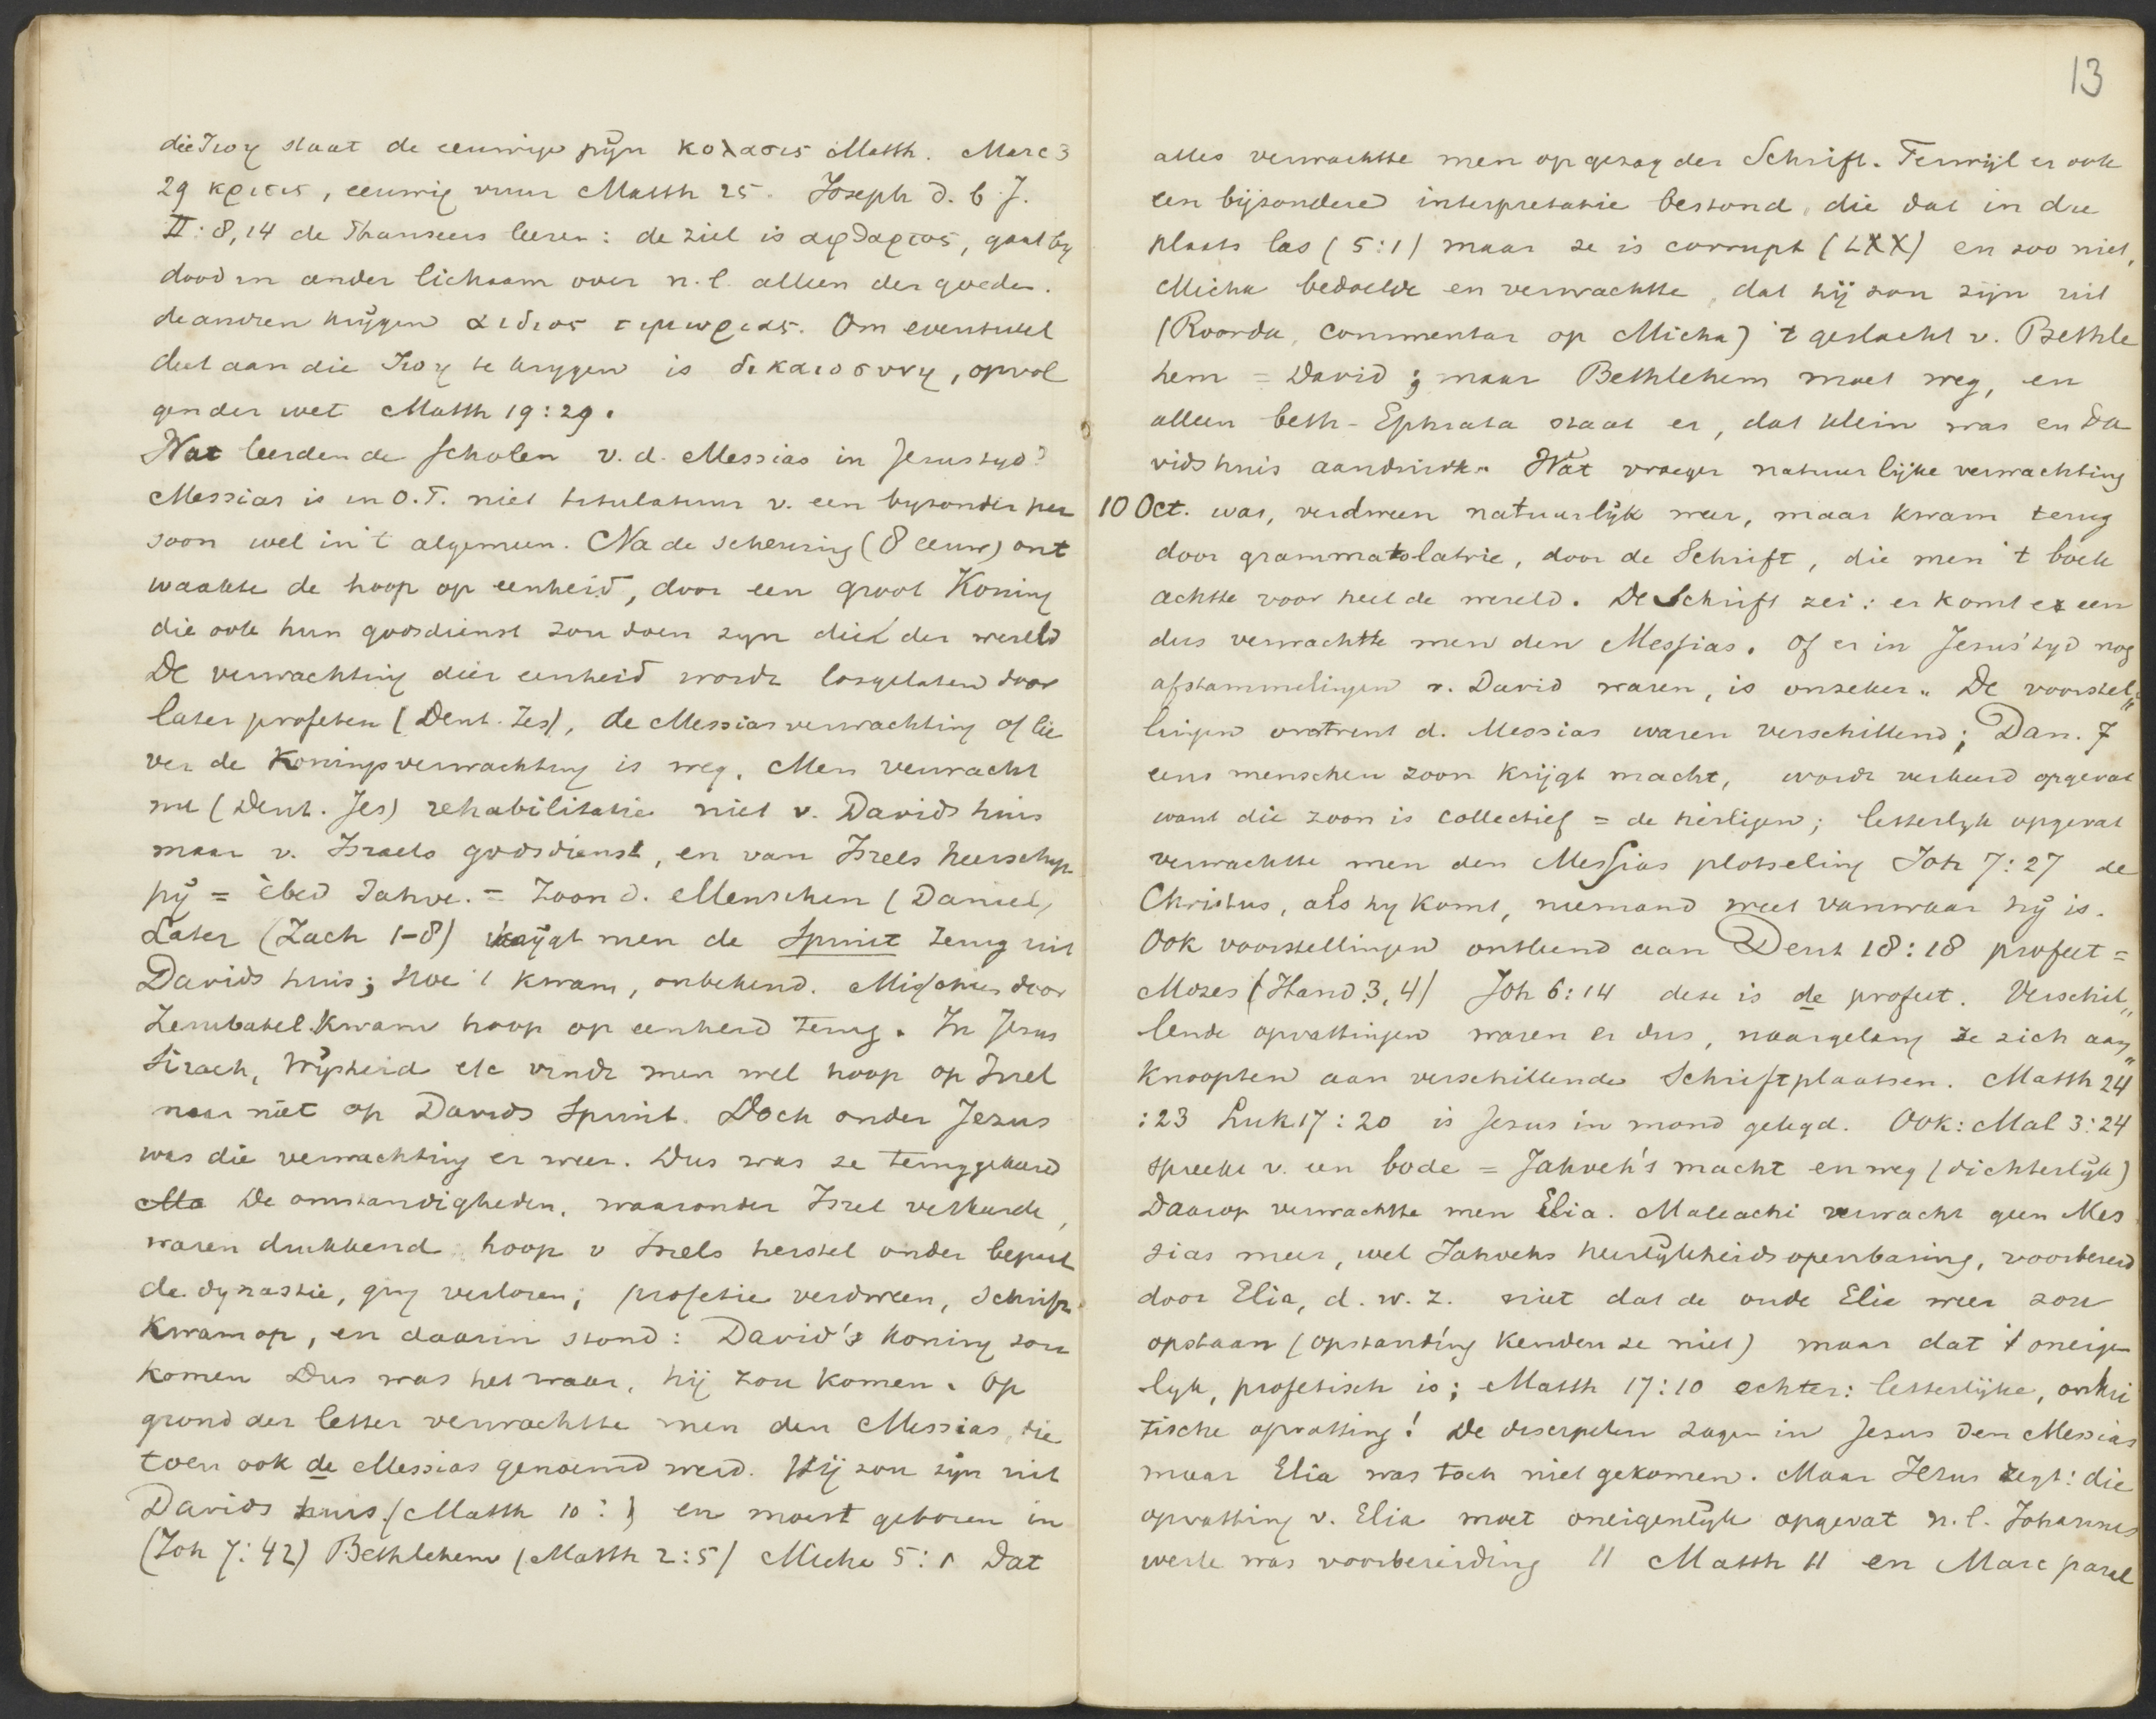 die ζωη staat de eeuwige pijn κολασις Matth. Marc 3
29 κρισις, eeuwig vuur Matth 25. Joseph d. b. J.
II: 8,14 de Pharizeers leeren: de ziel is αφθαρτος, gaat by
dood in ander lichaam over n.l. alleen der goeden.
de andren krijgen αιδιος τιμωριας. Om eventueel
deel aan die ζωη te krygen is δικαιοσυνη, opvol
gen der wet Matth 19:29.
Wat leerden de scholen v.d. Messias in Jesus tyd?
Messias is in O.T. niet titulatuur v. een byzonder per
soon wel in 't algemeen. Na de scheuring (8 eeuw) ont
waakte de hoop op eenheid, door een groot Koning
die ook hun godsdienst zou doen zyn die der wereld
De verwachting dier eenheid wordt losgelaten door
later profeten (Deut. Jes), de Messiasverwachting of lie
ver de Koningsverwachting is weg. Men verwacht
nu (Deut. Jes) rehabilitatie niet v. Davids huis
maar v. Israels godsdienst, en van Isrels heerschap
pij = ébed Jahve. = Zoon d. Menschen (Daniel)
Later (Zach 1-8) krijgt men de Spruit terug uit
Davids huis; hoe 't kwam, onbekend. Misschien door
Zerubabel kwam hoop op eenheid terug. In Jesus
Sirach, Wijsheid etc vindt men wel hoop op Isrel
maar niet op Davids Spruit. Doch onder Jezus
was die verwachting er weer. Dus was ze teruggekeerd
Ma De omstandigheden, waaronder Isrel verkeerde,
waren drukkend hoop v Isrels herstel onder bepaal
de dynastie, ging verloren; profetie verdween, Schrift
kwam op, en daarin stond: David's koning zou
komen Dus was het waar, hij zou komen. Op
grond der letter verwachtte men den Messias, die
toen ook de Messias genoemd werd. Hij zou zijn uit
Davids huis (Matth 10: ) en moest geboren in
(Joh 7:42) Bethlehem (Matth 2:5) Micha 5:1 Dat
13
alles verwachtte men op gezag der Schrift. Terwijl er ook
een bijzondere interpretatie bestond, die dat in die
plaats las (5:1) maar ze is corrupt (LXX) en zoo niet,
Micha bedoelde en verwachtte, dat hij zou zijn uit
(Roorda, commentar op Micha) 't geslacht v. Bethle
hem = David; maar Bethlehem moet weg, en
alleen beth-Ephrata staat er, dat klein was en Da
vids huis aanduidt. Wat vroeger natuurlijke verwachting
10 Oct. was, verdween natuurlijk weer, maar kwam terug
door grammatolatrie, door de Schrift, die men 't boek
achtte voor heel de wereld. De Schrift zei: er komt er een
dus verwachtte men den Messias. Of er in Jesus' tyd nog
afstammelingen v. David waren, is onzeker. De voorstel"
lingen omtrent d. Messias waren verschillend; Dan. 7
eens menschen zoon krijgt macht, wordt verkeerd opgevat
want die zoon is collectief = de heiligen; letterlyk opgevat
verwachtte men den Messias plotseling Joh 7:27 de
Christus, als hy komt, niemand weet vanwaar hij is.
Ook voorstellingen ontleend aan Deut 18:18 profeet =
Mozes (Hand 3, 4) Joh 6:14 deze is de profeet. Verschil"
lende opvattingen waren er dus, naargelang ze zich aan"
knoopten aan verschillende Schriftplaatsen. Matth 24
:23 Luk 17:20 is Jesus in mond gelegd. Ook: Mal 3:24
spreekt v. een bode = Jahveh's macht en weg (dichterlijk)
Daarop verwachtte men Elia. Maleachi verwacht geen Mes
sias meer, wel Jahvehs heerlijkheidsopenbaring, voorbereid
door Elia, d.w.z. niet dat de oude Elia weer zou
opstaan (opstanding kenden ze niet) maar dat 't oneigen
lyk, profetisch is; Matth 17:10 echter: letterlijke, onkri
tische opvatting! De discipelen zagen in Jesus den Messias
maar Elia was toch niet gekomen. Maar Jezus zegt: die
opvatting v. Elia moet oneigenlijk opgevat n.l. Johannes
werk was voorbereiding 11 Matth 11 en Marc paral